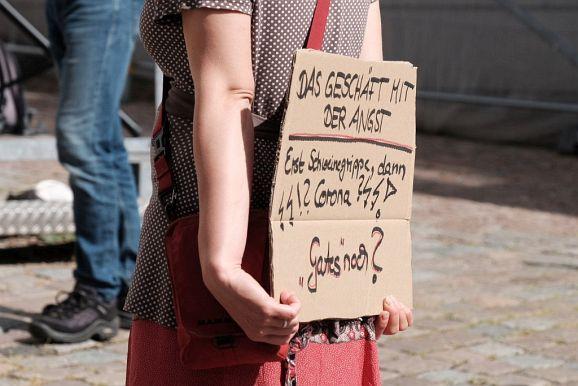 DAS GESCHÄFT MIT
DER ANGST
Erst Schweinegrippe, dann
!? Corona ?
"Gates" noch?
MAMMUT